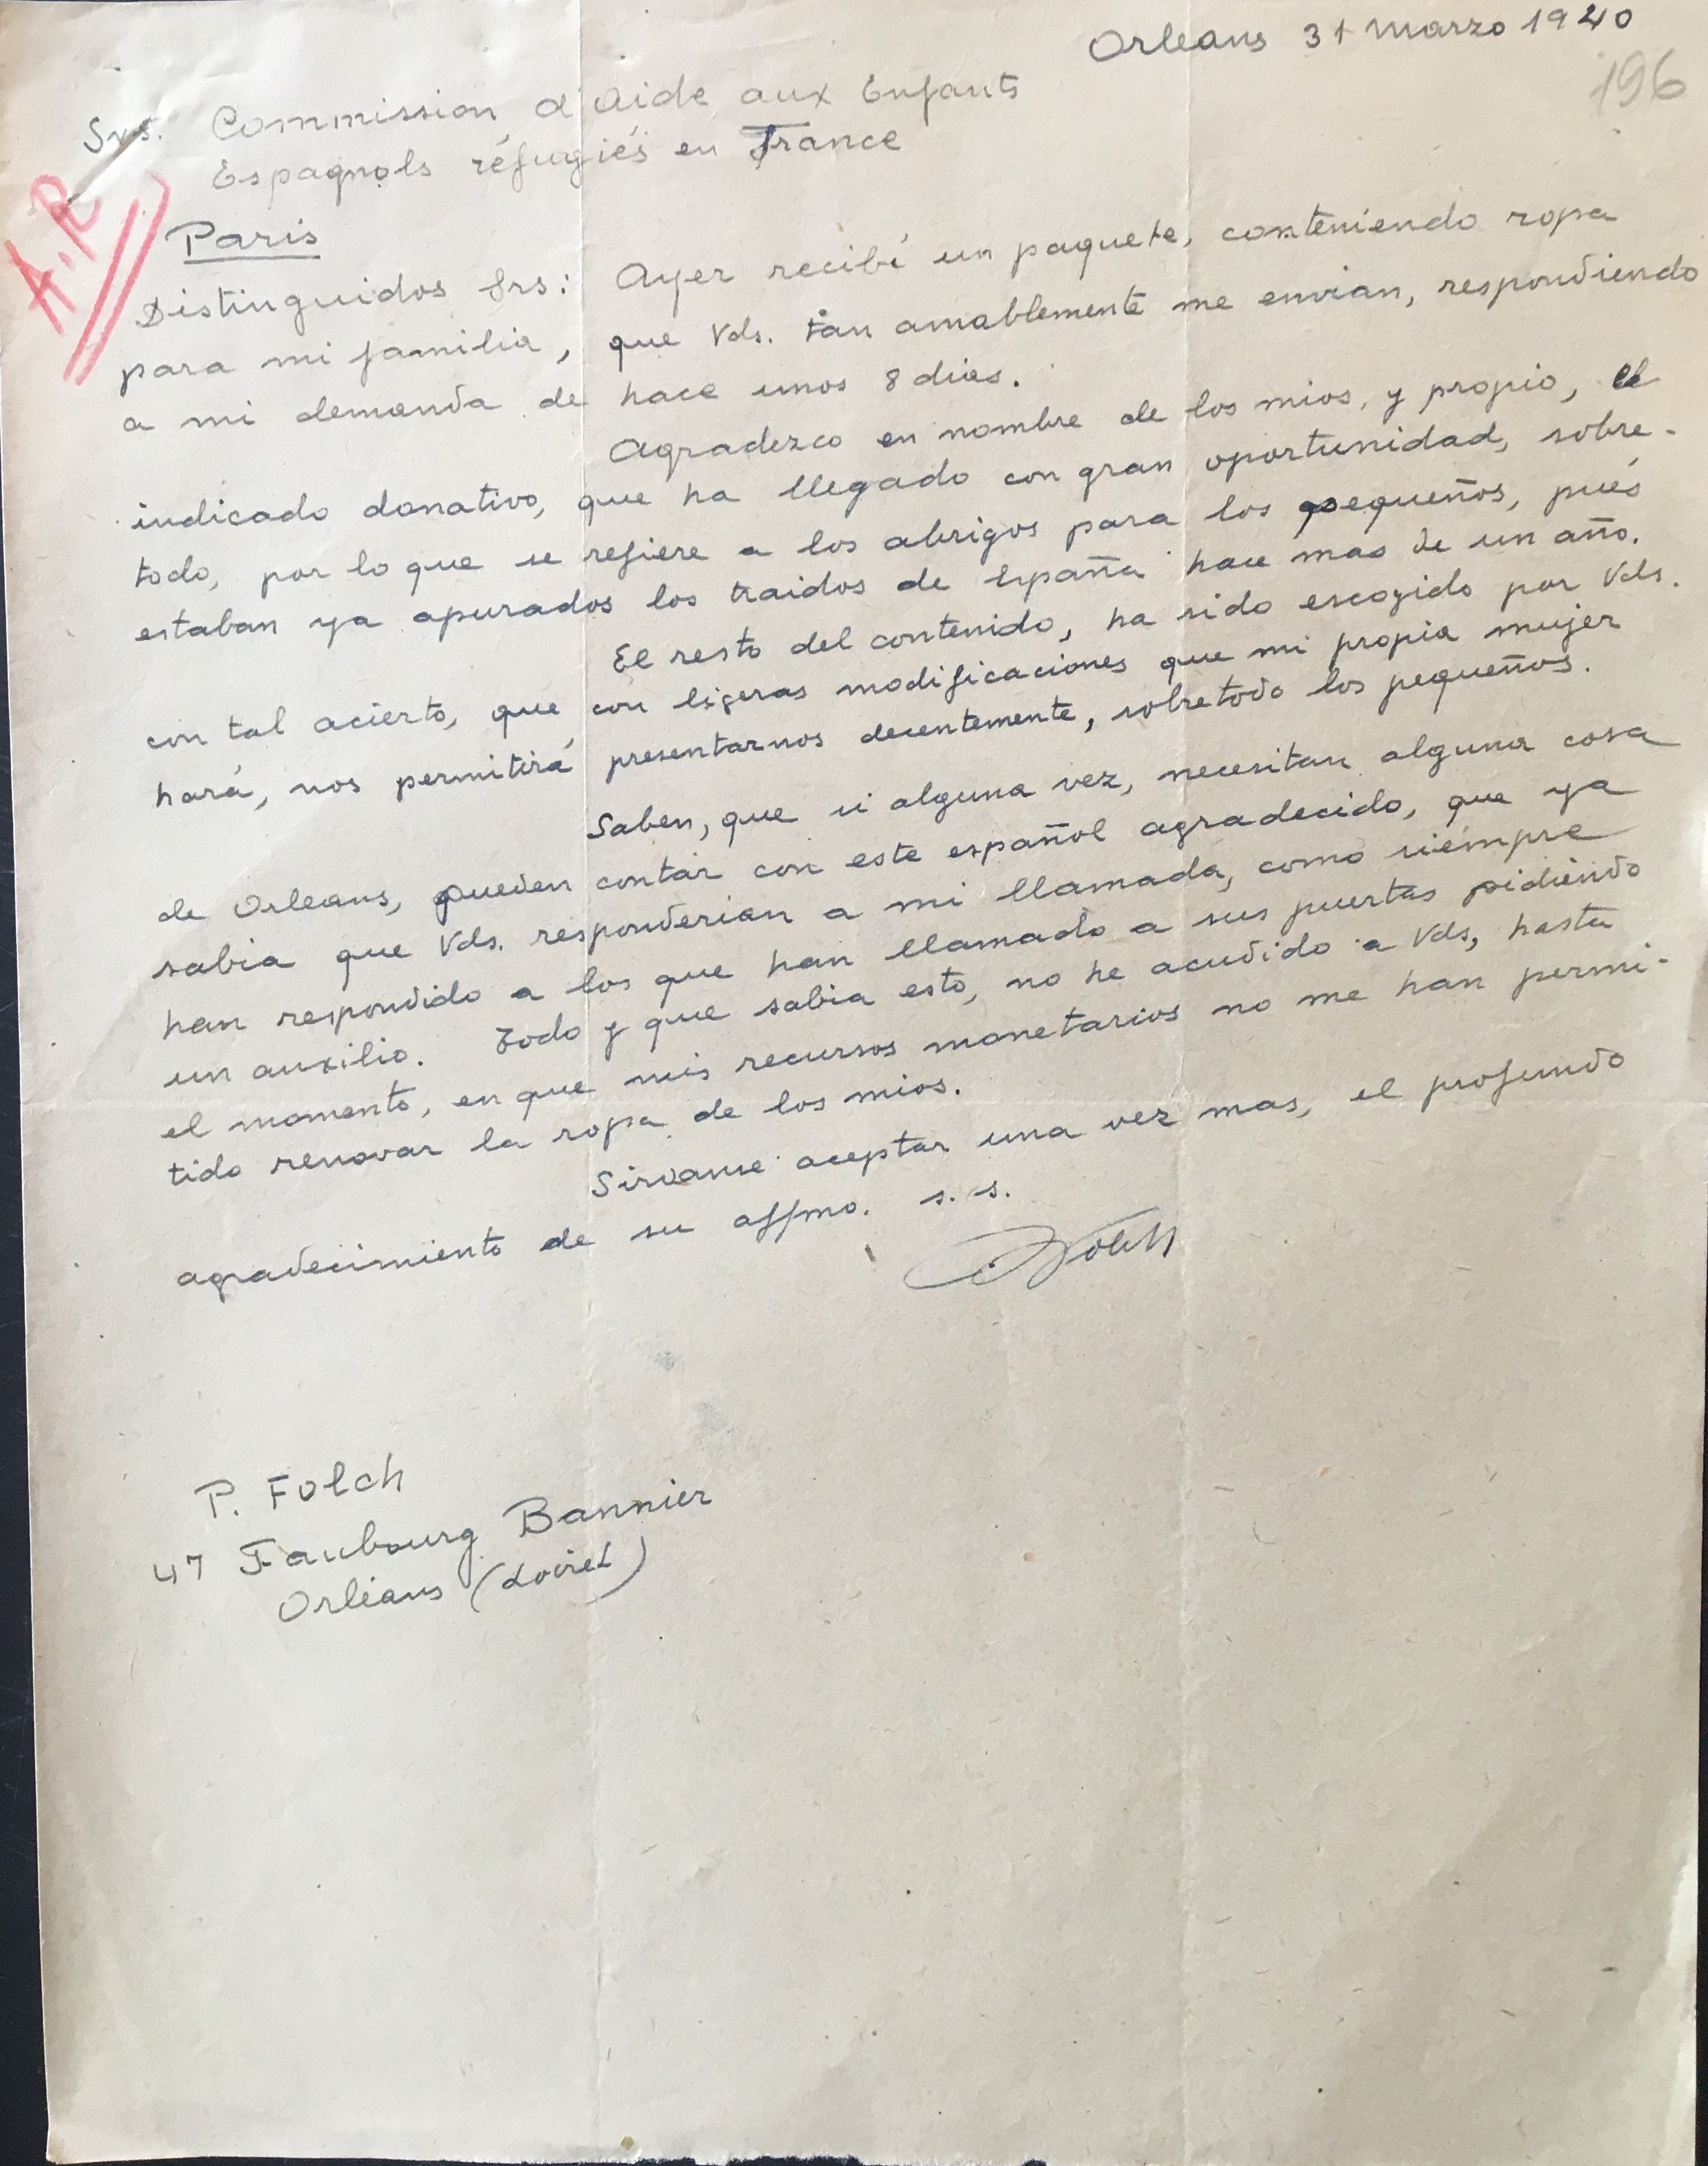 Orleans 31 Marzo 1940
196
Srs. Commission d'Aide aux Enfants
Espagnols réfugiés en France
A.R
Paris
Distinguidos Srs: Ayer recibí un paquete, conteniendo ropa
para mi familia, que Vds. tan amablemente me envian, respondiendo
a mi demanda de hace unos 8 dias.
Agradezco en nombre de los mios, y propio, el
indicado donativo, que ha llegado con gran oportunidad, sobre-
todo, por lo que se refiere a los abrigos para los pequeños, pués
estaban ya apurados los traidos de España hace mas de un año.
El resto del contenido, ha sido escogido por Vds.
con tal acierto, que, con ligeras modificaciones que mi propia mujer
hará, nos permitirá presentarnos decentemente, sobretodo los pequeños.
Saben, que si alguna vez, necesitan alguna cosa
de Orleans, pueden contar con este español agradecido, que ya
sabia que Vds. responderian a mi llamada, como siempre
han respondido a los que han llamado a sus puertas pidiendo
un auxilio. Todo y que sabia esto, no he acudido a Vds, hasta
el momento, en que mis recursos monetarios no me han permi-
tido renovar la ropa de los mios.
Sirvanse aceptar una vez mas, el profundo
agradecimiento de su affmo. s. s.
Folch
P. Folch
47 Faubourg Bannier
Orléans (Loiret)